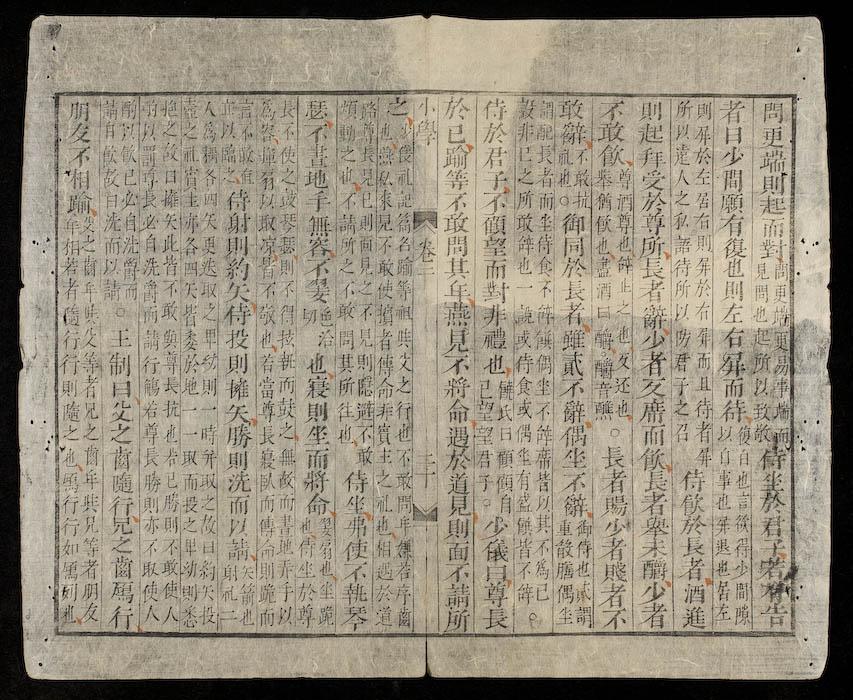 問更端則起而對問更端更易事端而見問也起所以致敬侍坐於君子若有告
者曰少間願有復也則左右屏而待復白也言欲得少間隙以白事也屏退也居左
則屏於左居右則屏於右屏而且待者屏所以遠人之私語待所以防君子之召侍飲於長者酒進
則起拜受於尊所長者辭少者反席而飲長者舉未釂少者
不敢飲尊酒尊也辭止之也反還也舉猶飲也盡酒曰釂釂音醮。長者賜少者賤者不
敢辭不敢抗禮也。御同於長者雖貳不辭偶坐不辭御侍也貳謂重殽膳偶坐
謂配長者而坐侍食不辭饌偶坐不辭席皆以其不為已設非已之所敢辭也一說或侍食或偶坐有盛饌皆不辭。
侍於君子不顧望而對非禮也輔氏曰顧顧自已望望君子。少儀曰尊長
於已踰等不敢問其年燕見不將命遇於道見則面不請所
小學 卷二 二十
之少儀禮記篇名踰等祖與父之行也不敢問年嫌若序齒也燕私來見不敢使擯者傳命非賓主之禮也相遇於道
路尊長見已則面見之不見則隱避不敢煩動之也不請所之不敢問其所往也侍坐弗使不執琴
瑟不畫地手無容不翣色洽切也寢則坐而將命翣扇也坐跪也侍坐於尊
長不使之鼓琴瑟則不得執而鼓之無故而畫地弄手以為容揮扇以取涼皆不敬也若當尊長寢臥而傳命則跪而
言不敢直立以臨之侍射則約矢侍投則擁矢勝則洗而以請矢箭也射禮二
人為耦各四矢更迭取之卑幼則一時并取之故曰約矢投壺之禮賓主亦各四矢皆委於地一一取而投之卑幼則悉
抱之故曰擁矢此皆不敢與尊長抗也若已勝則不敢使人酌以罰尊長必自洗爵而請行觴若尊長勝則亦不敢使人
酌以飲已必自洗爵而請自飲故曰洗而以請。王制曰父之齒隨行兄之齒鴈行
朋友不相踰父之齒年與父等者兄之齒年與兄等者朋友年相若者隨行行則隨之也鴈行行如鴈列也